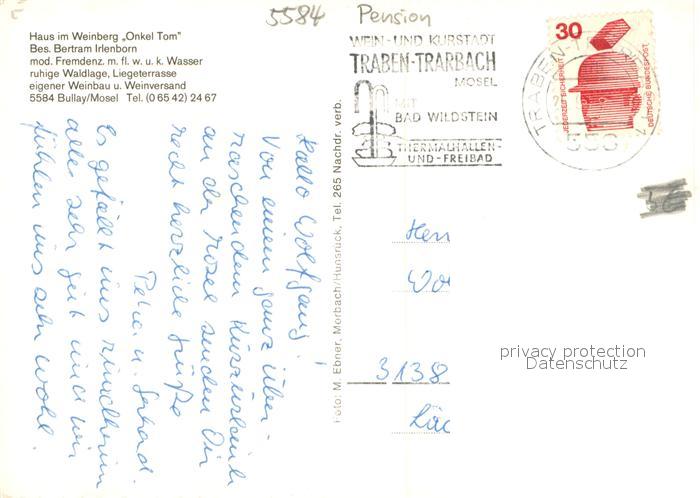 5584 Pension
Haus im Weinberg „Onkel Tom"
Bes. Bertram Irlenborn
mod. Fremdenz. m. fl. w. u. k. Wasser
ruhige Waldlage, Liegeterrasse
eigener Weinbau u. Weinversand
5584 Bullay/Mosel Tel. (0 65 42) 24 67
WEIN- UND KURSTADT
TRABEN-TRARBACH
MOSEL
MIT
BAD WILDSTEIN
THERMALHALLEN-
UND-FREIBAD
TRABEN-TR
30
JEDERZEIT SICHERHEIT
DEUTSCHE BUNDESPOST
Hallo Wolfgang!
Von einem ganz über-
raschenden Kurzurlaub
an der Mosel senden Dir
recht herzliche Grüße
Petra u. Gerhard.
Es gefällt uns rundherum
alles sehr gut und wir
fühlen uns sehr wohl.
Foto: M. Ebner, Morbach/Hunsrück, Tel. 265 Nachdr. verb.
Herrn
Wo
3138
privacy protection
Datenschutz